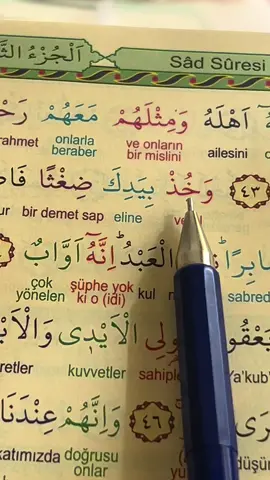 اَلْجُزْءُ Sâd Sûresi
اَهْلَهُ وَمِثْلَهُمْ مَعَهُمْ
ailesini ve onların bir mislini onlarla beraber rahmet
٤٣ وَخُذْ بِيَدِكَ ضِغْثًا
eline bir demet sap
الْعَبْدُ اِنَّهُٓ اَوَّابٌ
sabred kul şüphe yok ki o (idi) çok yönelen
الْاَيْد۪ي
Ya'kub' sahiple kuvvetler retler
٤٦ وَاِنَّهُمْ عِنْدَنَا
düşün doğrusu onlar katımızda